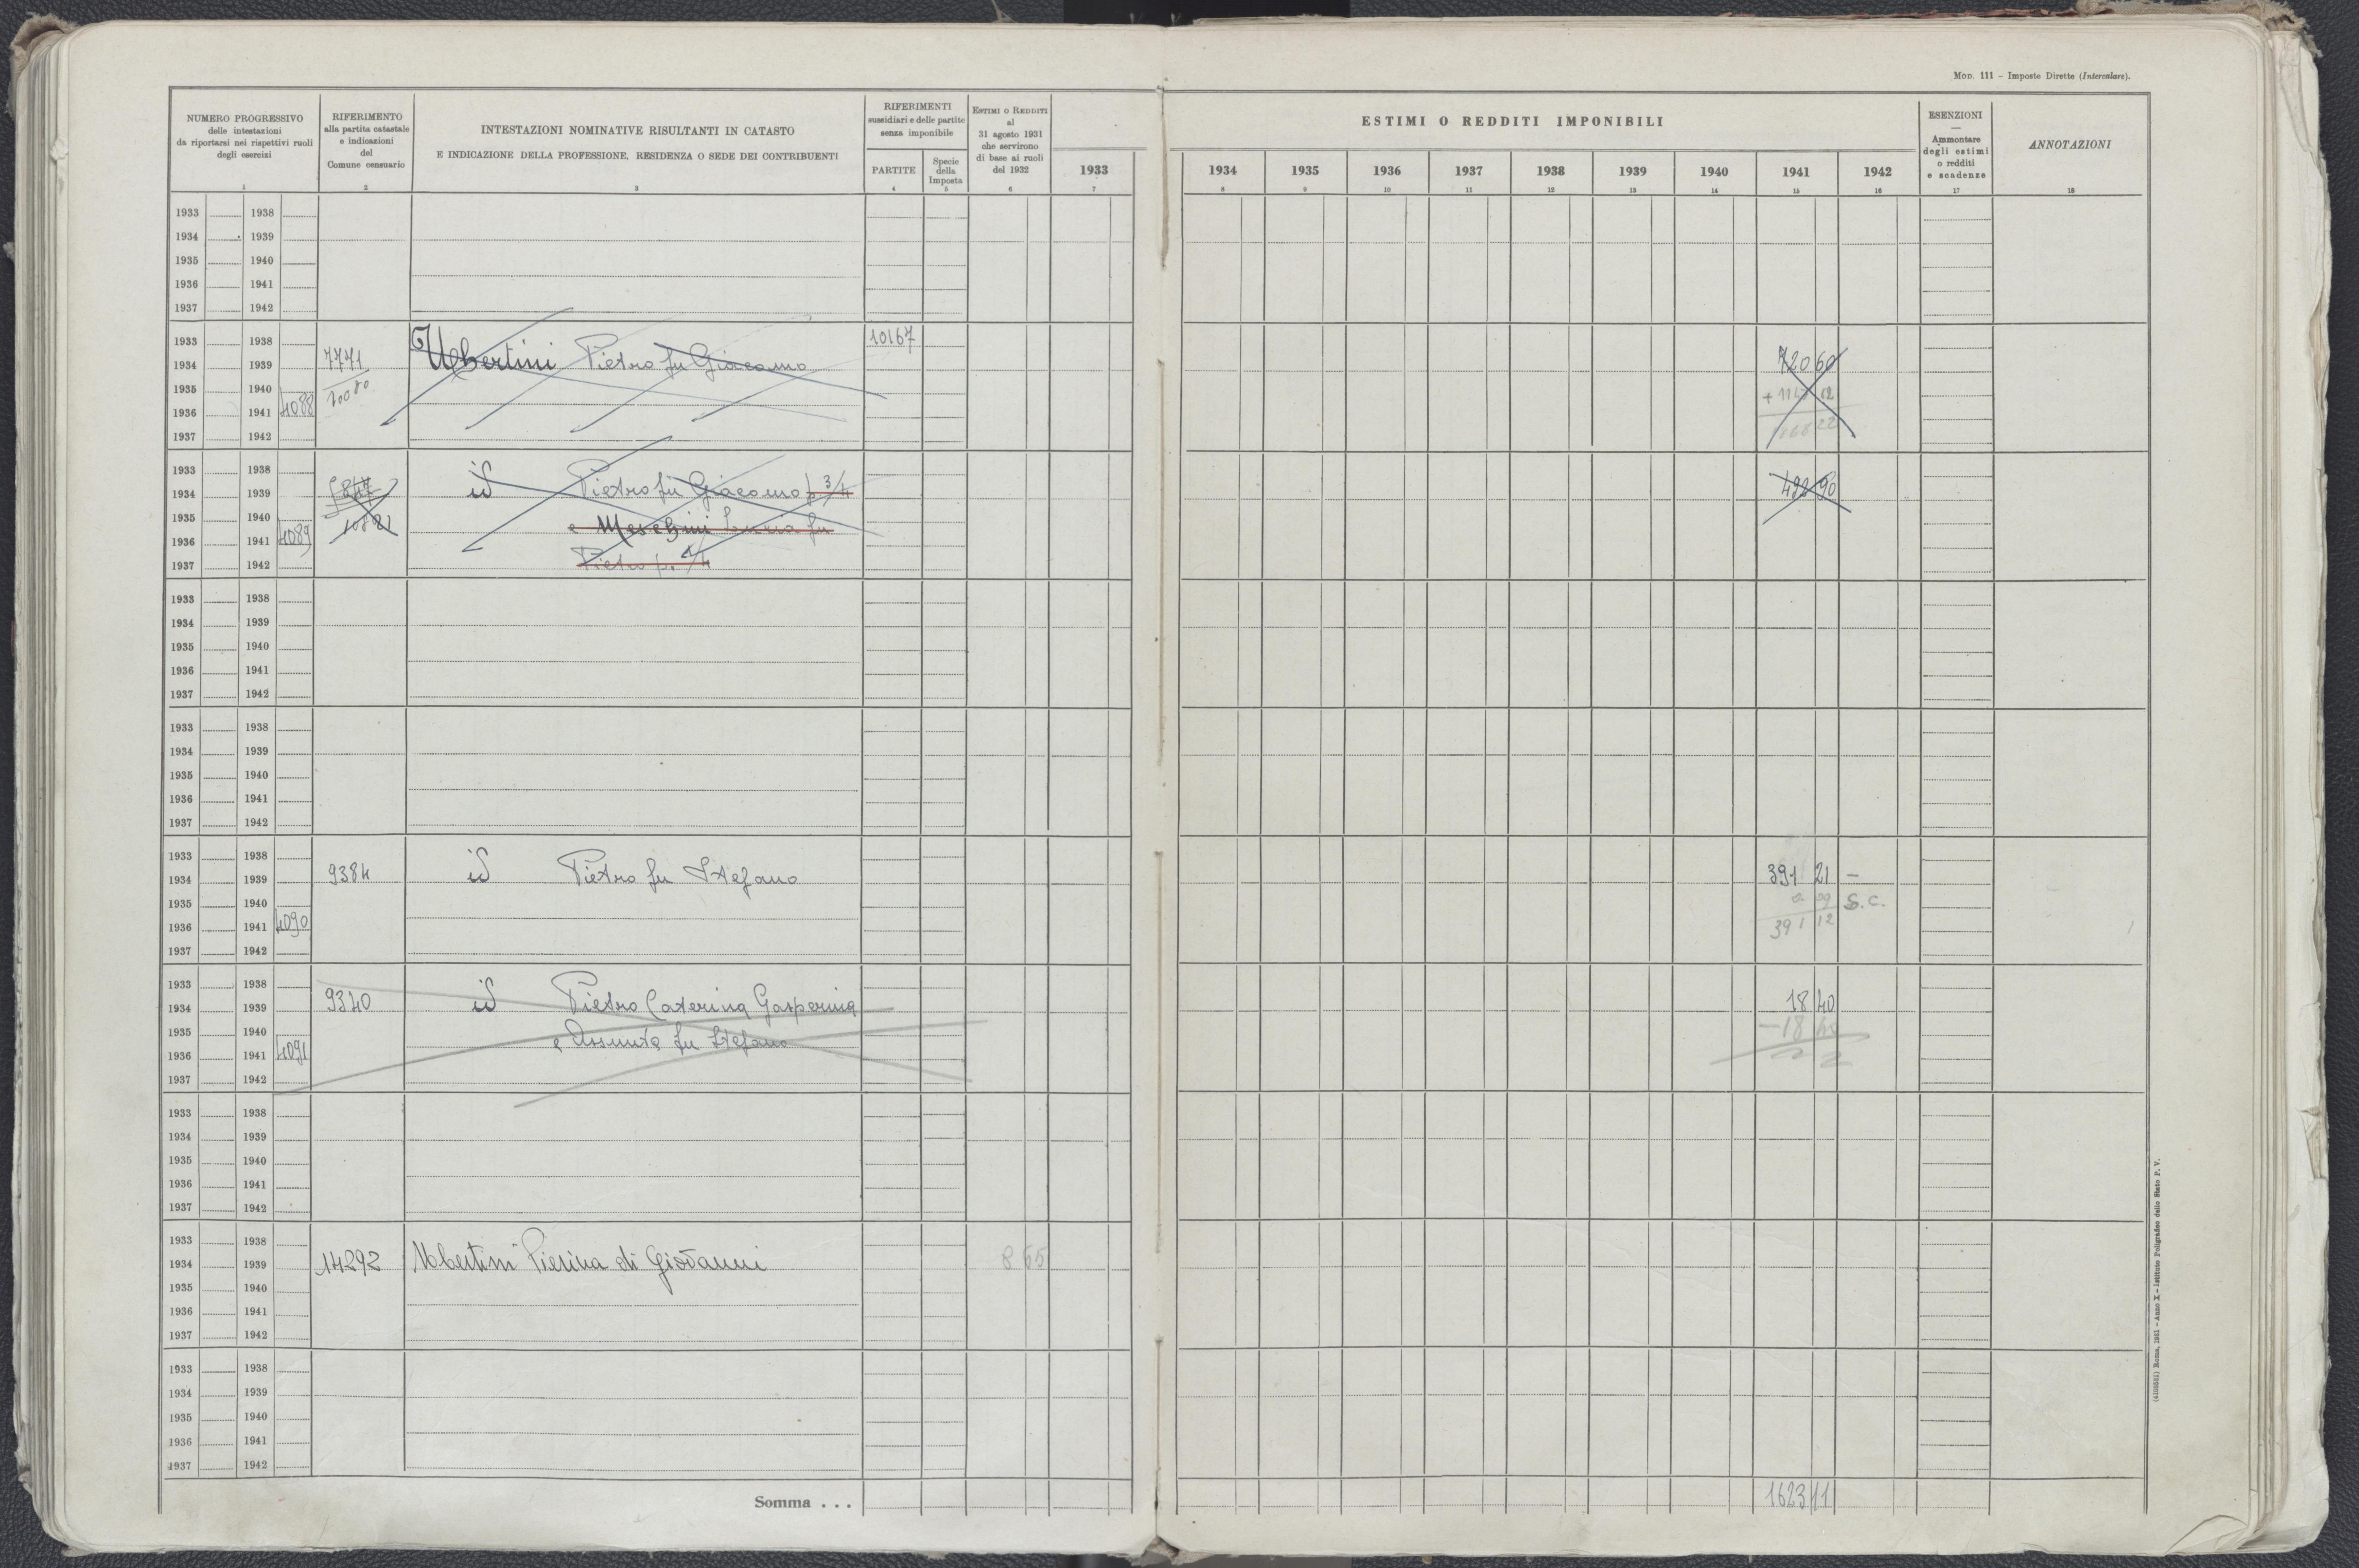 MOD. 111 - Imposte Dirette (Intercalare).
NUMERO PROGRESSIVO
delle intestazioni
da riportarsi nei rispettivi ruoli
degli esercizi
1
RIFERIMENTO
alla partita catastale
e indicazioni
del
Comune censuario
2
INTESTAZIONI NOMINATIVE RISULTANTI IN CATASTO
E INDICAZIONE DELLA PROFESSIONE, RESIDENZA O SEDE DEI CONTRIBUENTI
3
RIFERIMENTI
sussidiari e delle partite
senza imponibile
PARTITE
4
Specie
della
Imposta
5
ESTIMI O REDDITI
al
31 agosto 1931
che servirono
di base ai ruoli
del 1932
6
1933
7
ESTIMI O REDDITI IMPONIBILI
1934 1935 1936 1937 1938 1939 1940 1941 1942
8 9 10 11 12 13 14 15 16
ESENZIONI
—
Ammontare
degli estimi
o redditi
e scadenze
17
ANNOTAZIONI
18
1933 1938
1934 1939
1935 1940
1936 1941
1937 1942
1933 1938 10167
1934 1939 7771 Ubertini Pietro fu Giacomo 720 60
1935 1940 10080
1936 1941 4088 12
1937 1942 22
1933 1938
1934 1939 id Pietro fu Giacomo p. 3/4 90
1935 1940 e Meschini fu
1936 1941 4089
1937 1942 Pietro p. 1/4
1933 1938
1934 1939
1935 1940
1936 1941
1937 1942
1933 1938
1934 1939
1935 1940
1936 1941
1937 1942
1933 1938
1934 1939 9384 id Pietro fu Stefano 391 21 -
1935 1940 0 09 S.C.
1936 1941 4090 391 12
1937 1942
1933 1938
1934 1939 9340 id Pietro Caterina Gasperina 18 40
1935 1940 e Assunta fu Stefano - 18 40
1936 1941 4091
1937 1942
1933 1938
1934 1939
1935 1940
1936 1941
1937 1942
1933 1938
1934 1939 14292 Ubertini Pierina di Giovanni 8 65
1935 1940
1936 1941
1937 1942
1933 1938
1934 1939
1935 1940
1936 1941
1937 1942
Somma . . . 1623 11
Roma, 1931 - Anno X - Istituto Poligrafico dello Stato P. V.